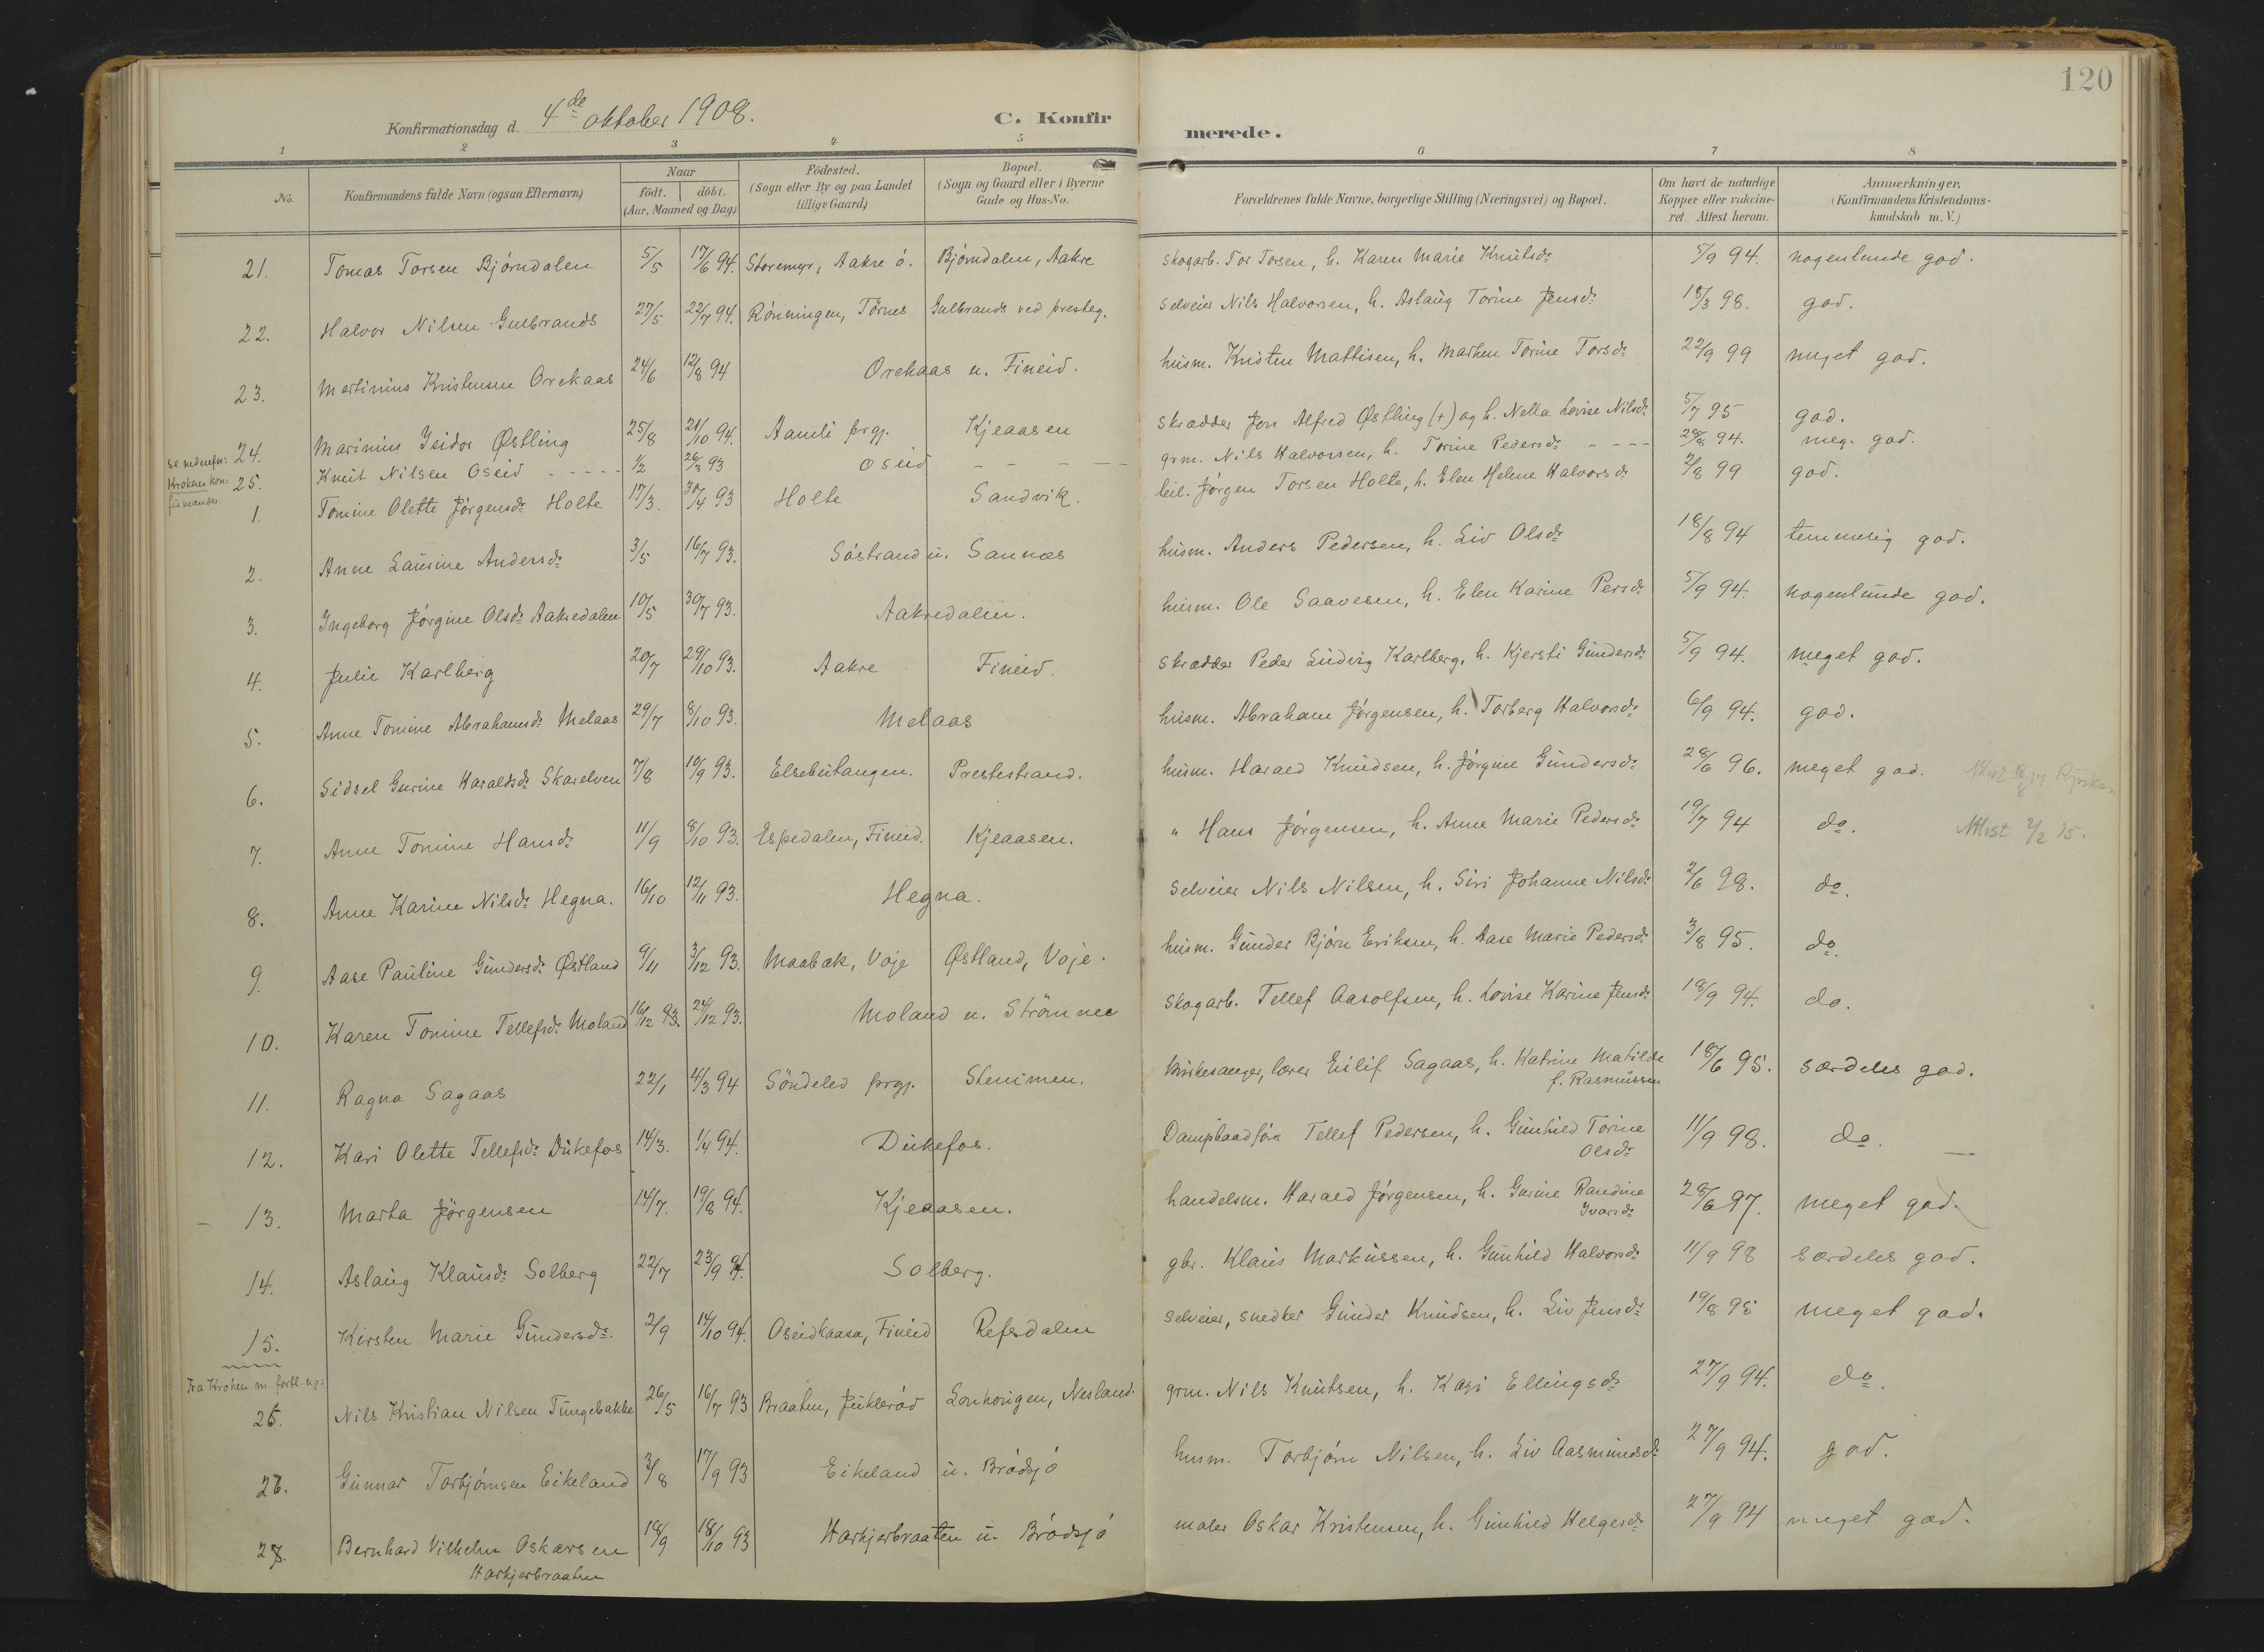 120
Konfirmationsdag d. 4de oktober 1908.
C. Konfirmerede.
1 2 3 4 5 6 7 8
No.
Konfirmandens fulde Navn (ogsaa Efternavn)
Naar
födt. döbt.
(Aar, Maaned og Dag)
Födested.
(Sogn eller By og paa Landet
tillige Gaard)
Bopæl.
(Sogn og Gaard eller i Byerne
Gade og Hus-No.
Forældrenes fulde Navne, borgerlige Stilling (Næringsvei) og Bopæl.
Om havt de naturlige
Kopper eller vakcine-
ret. Attest herom.
Anmærkninger.
(Konfirmandens Kristendoms-
kundskab m. V.)
21. Tomas Torsen Bjørndalen 5/5 17/6 94. Storemyr, Aakre ø. Bjørndalen, Aakre skogarb. Tor Torsen, h. Karen Marie Knutsd: 5/9 94. nogenlunde god.
22. Halvor Nilsen Gulbrands 27/5 22/7 94. Rønningen, Törnes Gulbrands ved presteg. selveier Nils Halvorsen, h. Aslaug Torine Jensd: 18/3 98. god.
23. Martinius Kristensen Orekaas 24/6 12/8 94 Orekaas u. Fineid. husm. Kristen Mattisen, h. Marthen Torine Torsd: 22/9 99 meget god.
24. Marinius Isidor Østling 25/8 21/10 94. Aamli prgj. Kjeaasen skrædder Jon Alfred Østling (+) og h. Nella Lovise Nilsd: 5/7 95 god.
se nedenfor:
Kroken kon-
firmander.
25. Knut Nilsen Oseid - - - - - 1/2 26/3 93 Oseid - - - - grm. Nils Halvorsen, h. Torine Pedersd: - - - - 28/8 94. meg. god.
1. Tomine Olette Jørgensd: Holte 17/3. 30/4 93 Holte Sandvik. leil. Jørgen Torsen Holte, h. Elen Helene Halvorsd: 2/8 99 god.
2. Anne Laurine Andersd: 3/5 16/7 93. Søstrand u. Sannes husm. Anders Pedersen, h. Liv Olsd: 18/8 94 temmelig god.
3. Ingeborg Jørgine Olsd: Aakredalen 10/5 30/7 93. Aakredalen. husm. Ole Saavesen, h. Elen Karine Persd: 5/9 94. nogenlunde god.
4. Julie Karlberg 20/7 29/10 93. Aakre Fineid. Skrædder Peder Ludvig Karlberg, h. Kjersti Gundersd: 5/9 94. meget god.
5. Anne Tomine Abrahamsd: Melaas 29/7 8/10 93. Melaas husm. Abraham Jørgensen, h. Torberg Halvorsd: 6/9 94. god.
6. Sidsel Gurine Haraldsd: Skarelven 7/8 10/9 93. Elsebutangen. Prestestrand. husm. Harald Knudsen, h. Jørgine Gundersd: 28/6 96. meget god.
7. Anne Tomine Hansd: 11/9 8/10 93. Espedalen, Fineid. Kjeaasen. " Hans Jørgensen, h. Anne Marie Pedersd: 19/7 94 do. Attest 2/2 15.
8. Anne Karine Nilsd: Hegna. 16/10 12/11 93. Hegna. selveier Nils Nilsen, h. Siri Johanne Nilsd: 2/6 98. do.
9. Aase Pauline Gundersd: Østland 9/11 3/12 93. Maabæk, Voje Østland, Voje. husm. Gunder Bjørn Eriksen, h. Aase Marie Pedersd: 3/8 95. do.
10. Karen Tomine Tellefsd: Moland 16/12 93. 24/12 93. Moland u. Strømnee skogarb. Tellef Aasolfsen, h. Lovise Karine Jensd: 18/9 94. do.
11. Ragna Sagaas 22/1 4/3 94 Söndeled prgj. Stenimen. kirkesanger, lærer Eilif Sagaas, h. Katrine Matilde
f. Rasmussen 18/6 95. særdeles god.
12. Kari Olette Tellefsd: Dukefos 14/3. 1/4 94. Dukefos. Dampbaadför. Tellef Pedersen, h. Gunhild Torine
Olsd: 11/9 98. do.
13. Marta Jørgensen 14/7. 19/8 94. Kjeaasen. handelsm. Harald Jørgensen, h. Gurine Randine
Ivarsd: 28/6 97. meget god.
14. Aslaug Klausd: Solberg 22/7 23/9 94. Solberg. gbr. Klaus Markussen, h. Gunhild Halvorsd: 11/9 98 særdeles god.
15. Kirsten Marie Gundersd: 2/9 14/10 94. Oseidkaasa, Fineid Refsdalen selveier, snedker Gunder Knudsen, h. Liv Jensd: 19/8 95 meget god.
Fra Kroken m. fortl. no:
26. Nils Kristian Nilsen Tungebakke 26/5 16/7 93 Braaten, Juklerød Lonhovigen, Nesland. grm. Nils Knutsen, h. Kari Ellingsd: 27/9 94. do.
27. Gunnar Torbjørnsen Eikeland 3/8 17/9 93 Eikeland u. Brødsjø husm. Torbjørn Nilsen, h. Liv Aasmundsd: 27/9 94. god.
28. Bernhard Vilhelm Oskarsen
Harkjerbraaten 18/9 18/10 93 Harkjerbraaten u. Brødsjø maler Oskar Kristensen, h. Gunhild Helgesd: 27/9 94 meget god.